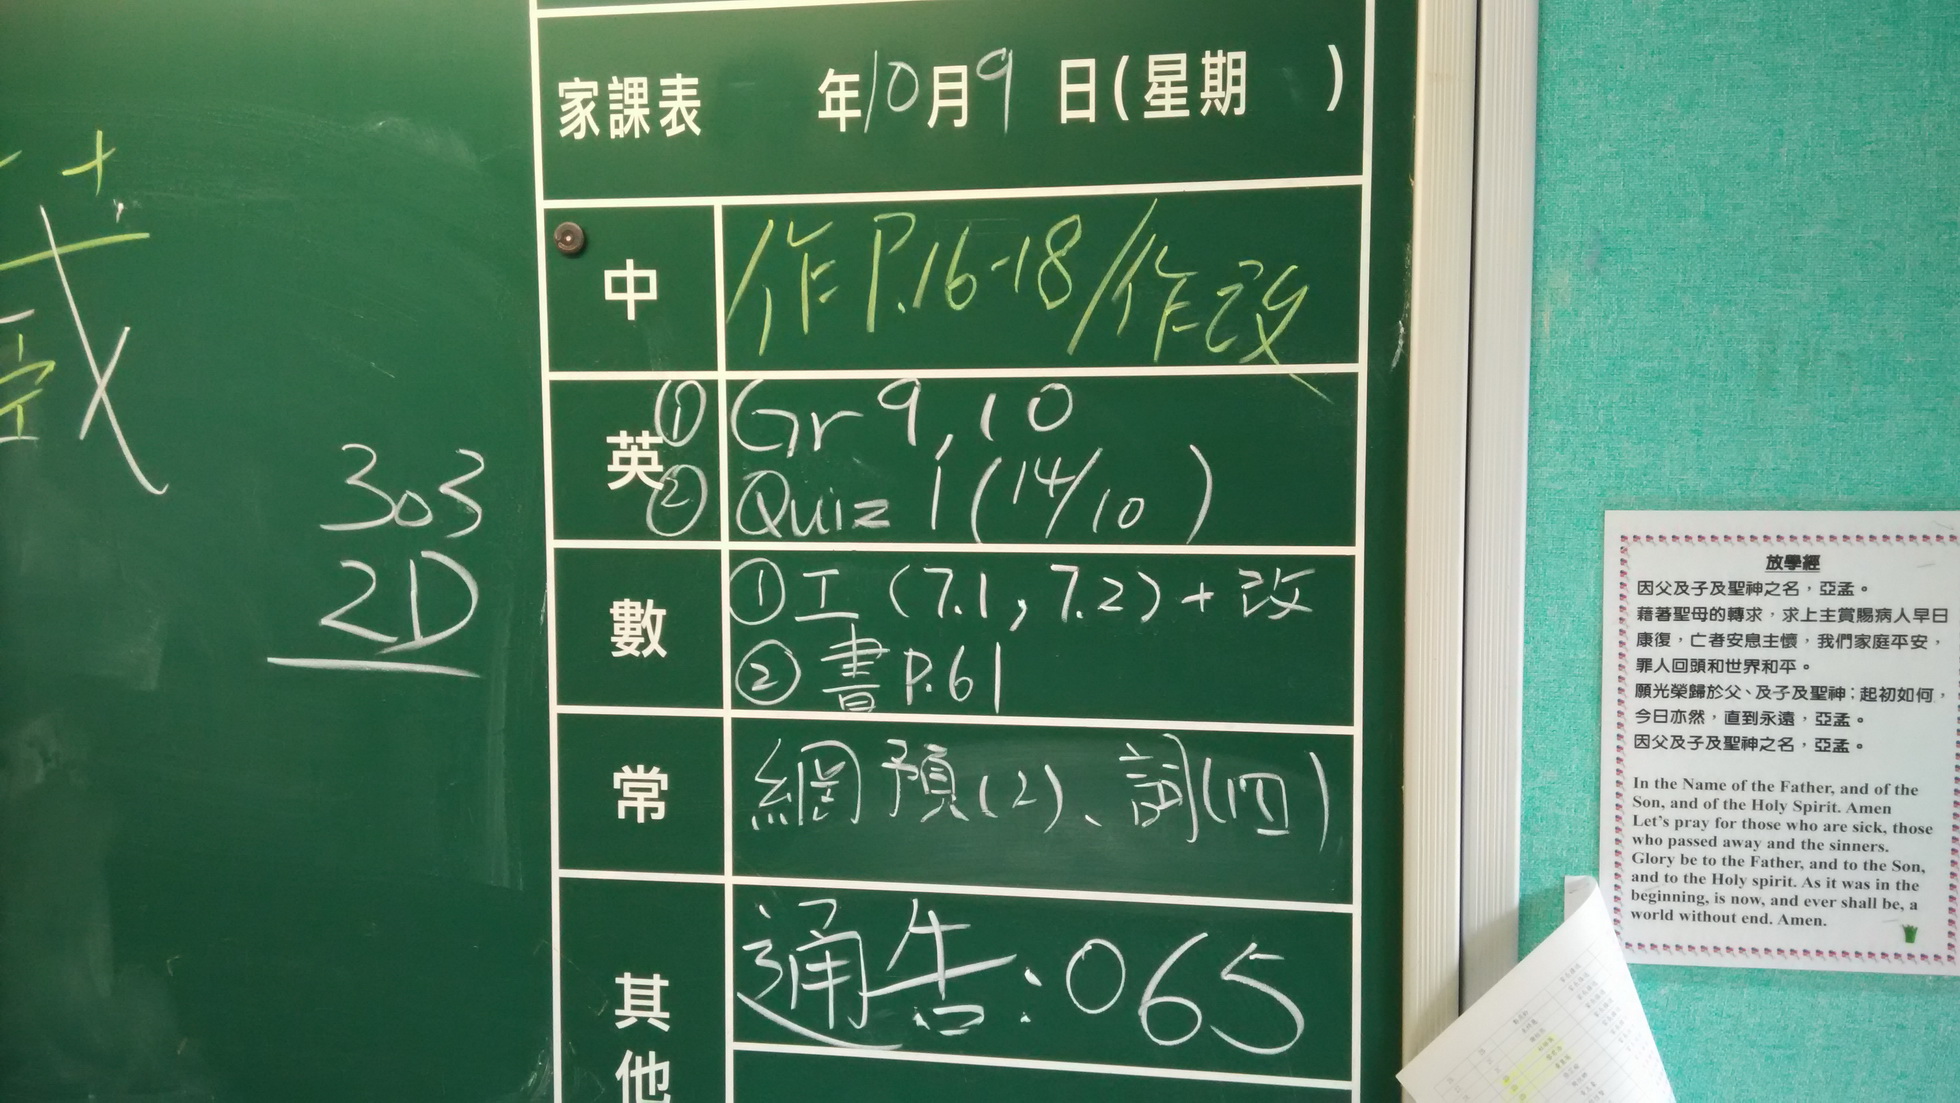 家課表 年10月9日(星期 )
中 作P.16-18/作改
英 ① Gr 9, 10
② Quiz 1 (14/10)
數 ①工 (7.1, 7.2) + 改
②書P.61
常 網預(2)、詞(四)
其他 通告:065
303
2D
放學經
因父及子及聖神之名,亞孟。
藉著聖母的轉求,求上主賞賜病人早日
康復,亡者安息主懷,我們家庭平安,
罪人回頭和世界和平。
願光榮歸於父、及子及聖神;起初如何,
今日亦然,直到永遠,亞孟。
因父及子及聖神之名,亞孟。
In the Name of the Father, and of the
Son, and of the Holy Spirit. Amen
Let's pray for those who are sick, those
who passed away and the sinners.
Glory be to the Father, and to the Son,
and to the Holy spirit. As it was in the
beginning, is now, and ever shall be, a
world without end. Amen.